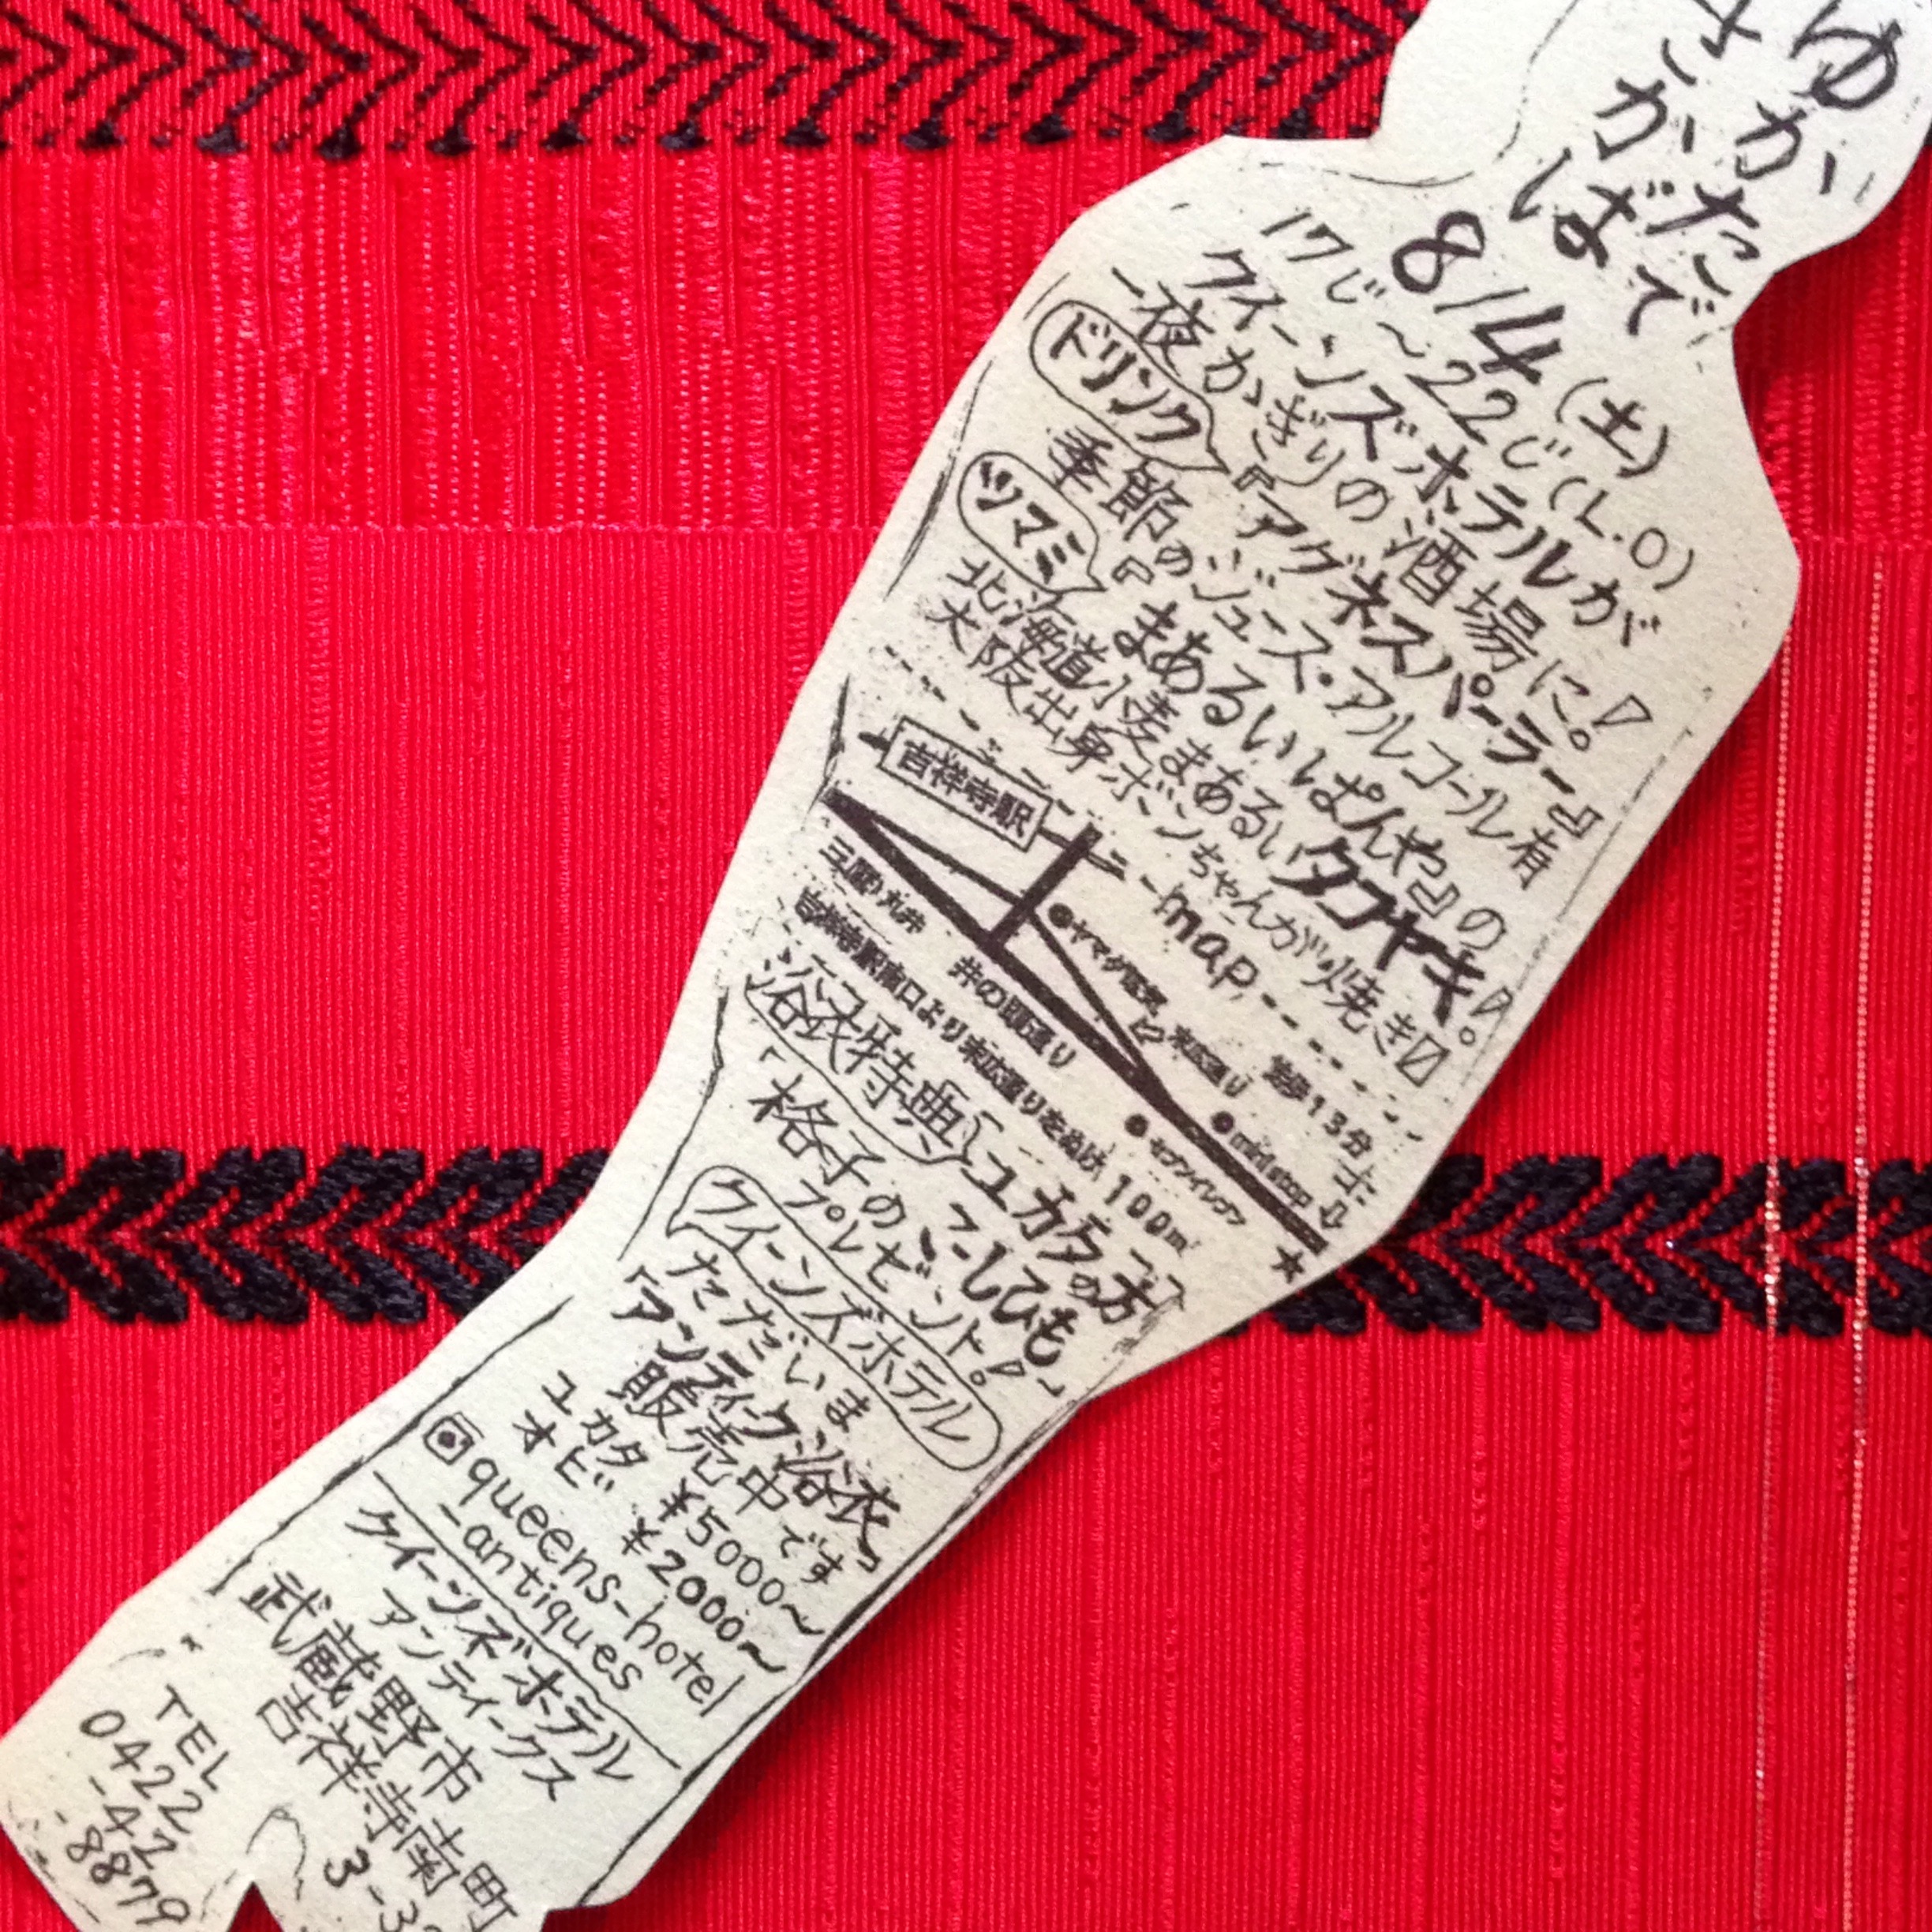 ゆかたで
さかば
8/4(土)
17じ〜22じ(L.O)
クイーンズホテルが
一夜かぎりの酒場に!
ドリンク『アグネスパーラー』
季節のジュース・アルコール有
ツマミ『まあるいぱんや』の
北海道小麦まあるいタコヤキ!
大阪出身ボンちゃんが焼き!
map
吉祥寺駅
ヤマダ電気
末広通り
徒歩13分
井の頭通り
mini stop
セブンイレブン
吉祥寺駅南口より末広通りをぬけ100m
浴衣特典 ユカタの方
「格子のこしひも」
プレゼント!
クイーンズホテル
ただいま
「アンティーク浴衣」
販売中です
ユカタ ¥5000〜
オビ ¥2000〜
queens-hotel
_antiques
クイーンズホテル
アンティークス
武蔵野市
吉祥寺南町
TEL
0422
-42
-8879